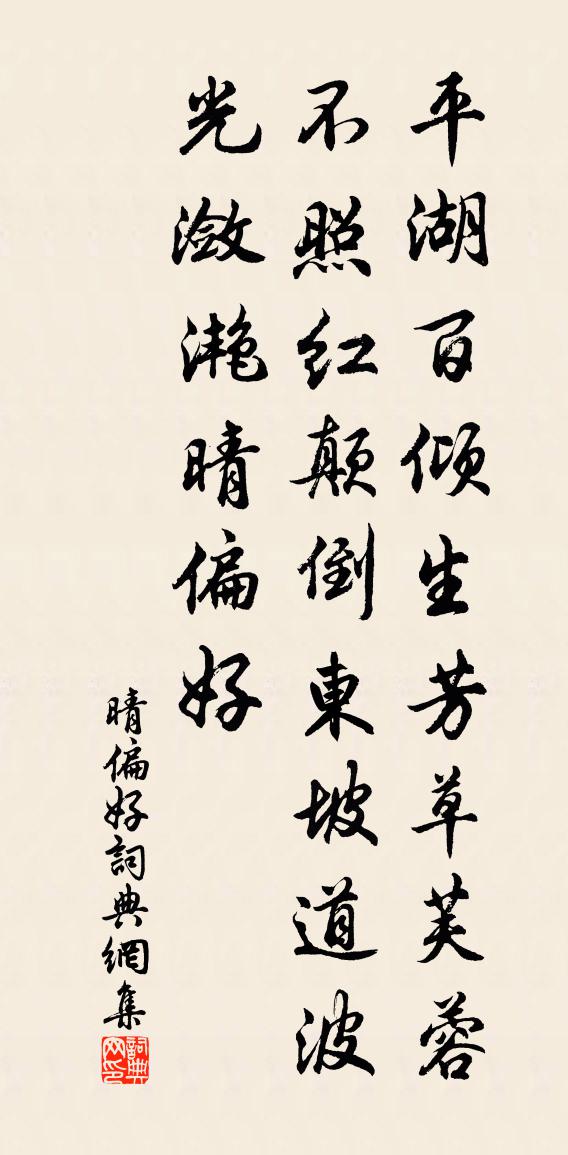 平湖百傾生芳草芙蓉
不照紅顛倒東坡道波
光瀲灧晴偏好
晴偏好詞典網集
詞典网印